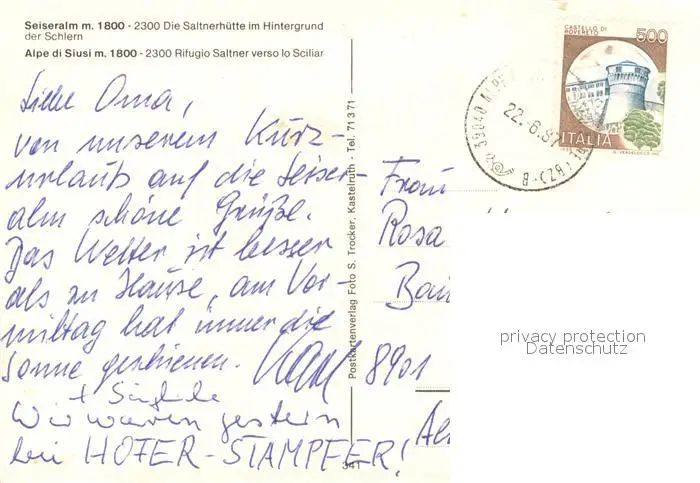 Seiseralm m. 1800 - 2300 Die Saltnerhütte im Hintergrund
der Schlern
Alpe di Siusi m. 1800 - 2300 Rifugio Saltner verso lo Sciliar
Liebe Oma,
von unserem Kurz-
urlaub auf die Seiser-
alm schöne Grüße.
Das Wetter ist besser
als zu Hause, am Vor-
mittag hat immer die
Sonne geschienen. Karl
+
Wir waren gestern
bei HOFER-STAMPFER!
Postkartenverlag Foto S. Trocker, Kastelruth - Tel. 71371
341
Frau
Rosa
8901
CASTELLO DI
ROVERETO
500
ITALIA
39040 ALPE
22.-6.87
(BZ) - B
privacy protection
Datenschutz